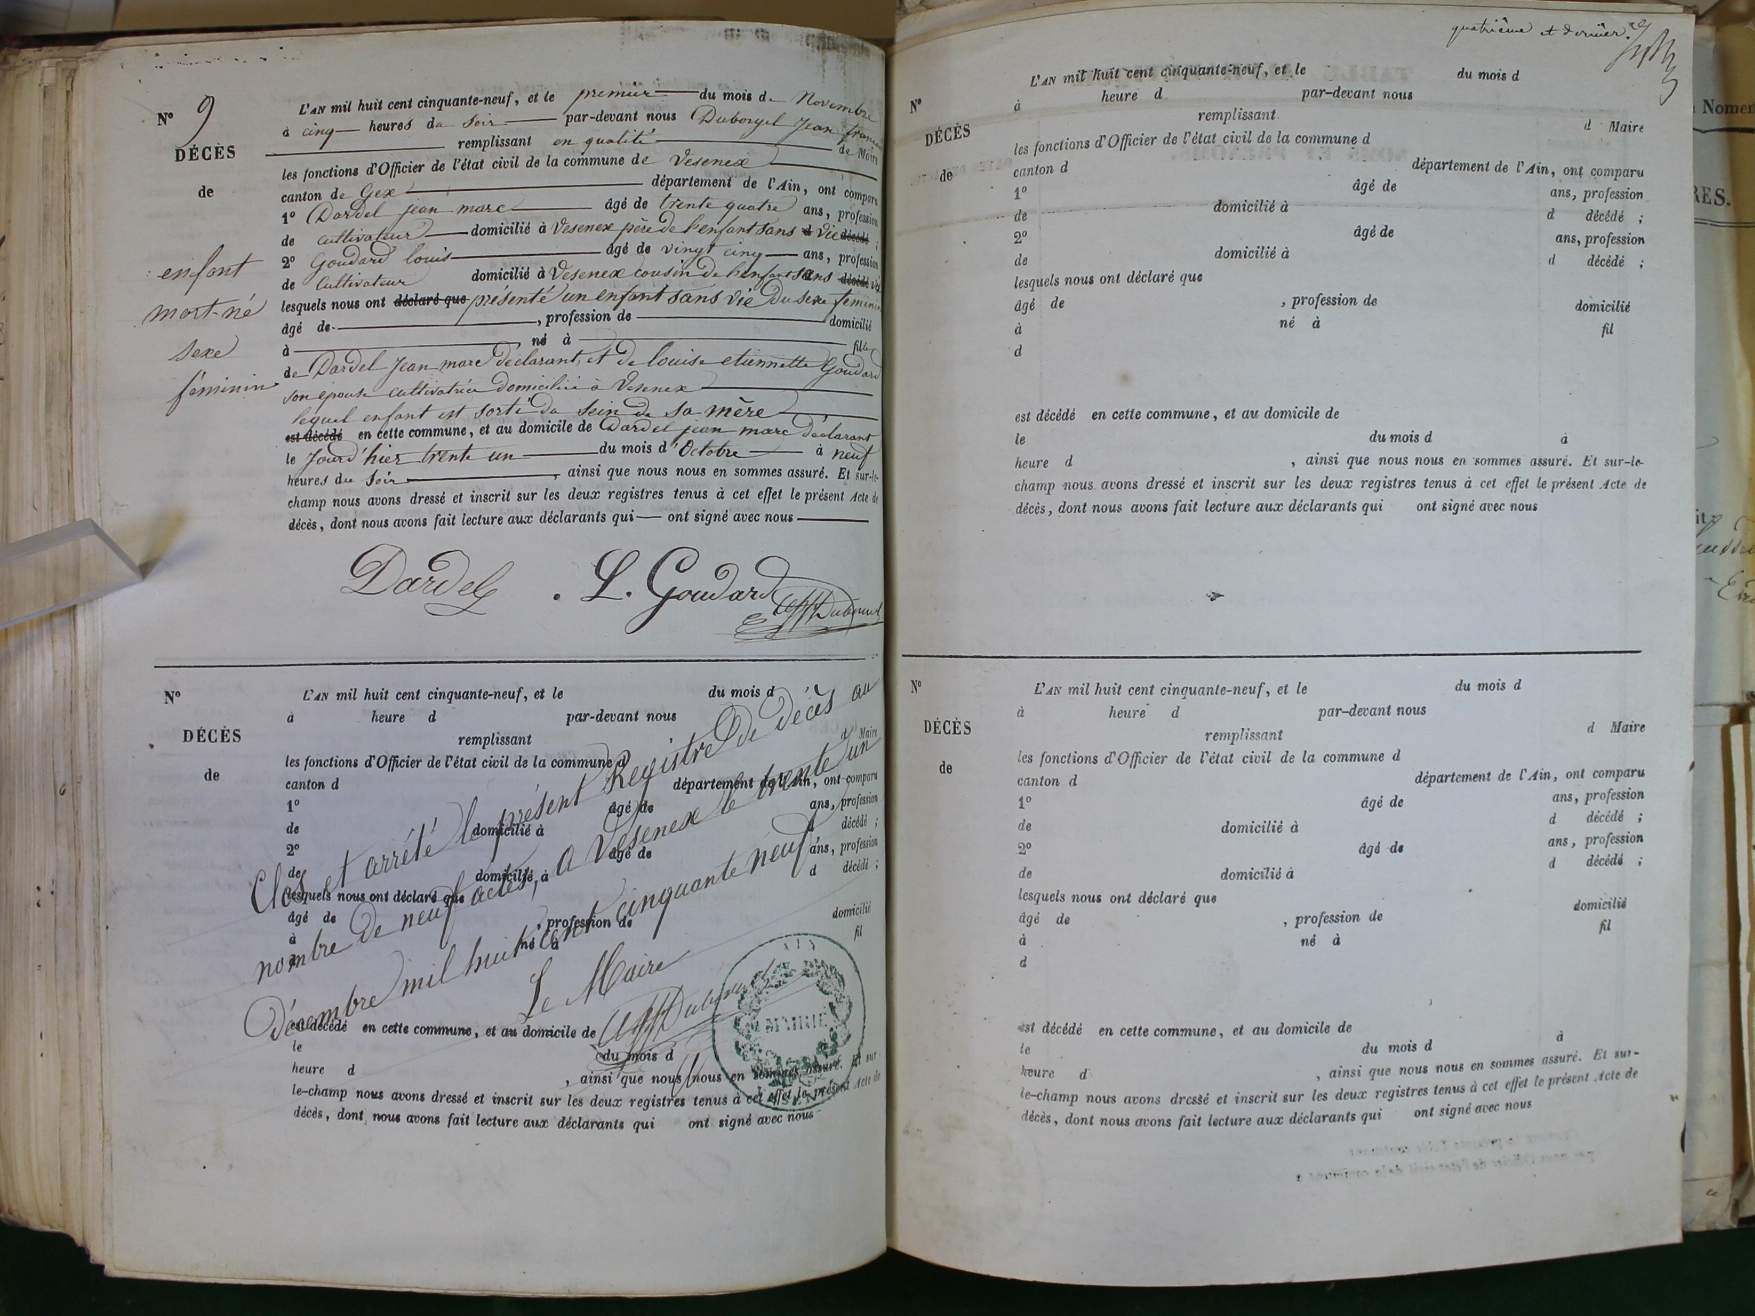 N° 9
DÉCÈS
de
enfant
mort-né
sexe
féminin
L'AN mil huit cent cinquante-neuf, et le premier du mois de Novembre
à cinq heures du soir par-devant nous Duborgel Jean françois
remplissant en qualité de Maire
les fonctions d'Officier de l'état civil de la commune de Vesenex
canton de Gex département de l'Ain, ont comparu
1° Dardel jean marc âgé de trente quatre ans, profession
de cultivateur domicilié à Vesenex père de l'enfant sans vie décédé ;
2° Goudard louis âgé de vingt cinq ans, profession
de Cultivateur domicilié à Vesenex cousin de l'enfant sans décédé vie
lesquels nous ont déclaré que présenté un enfant sans vie Du sexe feminin
âgé de , profession de domicilié
à né à fille
de Dardel Jean marc déclarant, et de louise etiennette Goudard
son épouse cultivatrice domiciliée à Vesenex
lequel enfant est sorti du sein de sa mère
est décédé en cette commune, et au domicile de Dardel jean marc déclarant
le Jourd'hier trente un du mois d'Octobre à neuf
heures du soir , ainsi que nous nous en sommes assuré. Et sur-le-
champ nous avons dressé et inscrit sur les deux registres tenus à cet effet le présent Acte de
décès, dont nous avons fait lecture aux déclarants qui ont signé avec nous
Dardel . L. Goudard
Duborgel
N°
DÉCÈS
de
L'AN mil huit cent cinquante-neuf, et le du mois d
à heure d par-devant nous
remplissant d Maire
les fonctions d'Officier de l'état civil de la commune d
canton d département de l'Ain, ont comparu
1° âgé de ans, profession
de domicilié à d décédé ;
2° âgé de ans, profession
de domicilié à d décédé ;
lesquels nous ont déclaré que
âgé de , profession de domicilié
à né à fil
Clos et arrêté le présent Registre de décès au
nombre de neuf actes, a Vesenex le trente un
Décembre mil huit cent cinquante neuf
Le Maire
Duborgel
AIN
MAIRIE
est décédé en cette commune, et au domicile de
le du mois d
heure d , ainsi que nous nous en sommes assuré. Et sur-
le-champ nous avons dressé et inscrit sur les deux registres tenus à cet effet le présent Acte de
décès, dont nous avons fait lecture aux déclarants qui ont signé avec nous
quatrième et dernier
N°
DÉCÈS
de
L'AN mil huit cent cinquante-neuf, et le du mois d
à heure d par-devant nous
remplissant d Maire
les fonctions d'Officier de l'état civil de la commune d
canton d département de l'Ain, ont comparu
1° âgé de ans, profession
de domicilié à d décédé ;
2° âgé de ans, profession
de domicilié à d décédé ;
lesquels nous ont déclaré que
âgé de , profession de domicilié
à né à fil
d
est décédé en cette commune, et au domicile de
le du mois d à
heure d , ainsi que nous nous en sommes assuré. Et sur-le-
champ nous avons dressé et inscrit sur les deux registres tenus à cet effet le présent Acte de
décès, dont nous avons fait lecture aux déclarants qui ont signé avec nous
N°
DÉCÈS
de
L'AN mil huit cent cinquante-neuf, et le du mois d
à heure d par-devant nous
remplissant d Maire
les fonctions d'Officier de l'état civil de la commune d
canton d département de l'Ain, ont comparu
1° âgé de ans, profession
de domicilié à d décédé ;
2° âgé de ans, profession
de domicilié à d décédé ;
lesquels nous ont déclaré que
âgé de , profession de domicilié
à né à fil
d
est décédé en cette commune, et au domicile de
le du mois d à
heure d , ainsi que nous nous en sommes assuré. Et sur-
le-champ nous avons dressé et inscrit sur les deux registres tenus à cet effet le présent Acte de
décès, dont nous avons fait lecture aux déclarants qui ont signé avec nous